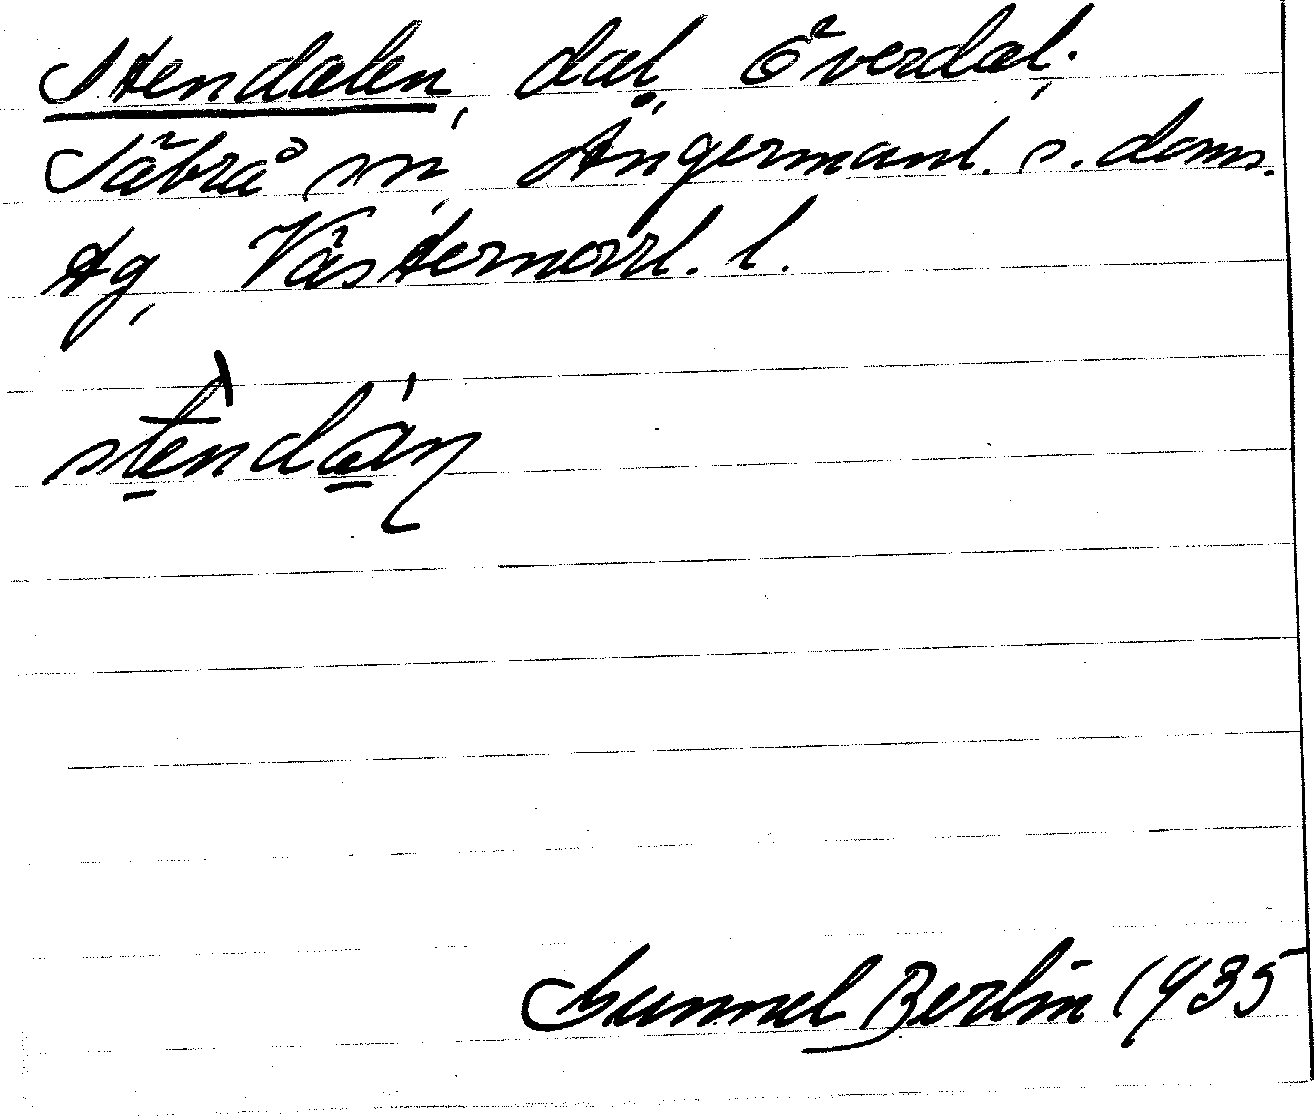 Stendalen, dal, Överdal,
Säbrå sn, Ångermanl. s. doms.
tg, Västernorrl. l.
stèndáɳ
Gunnel Berlin 1935